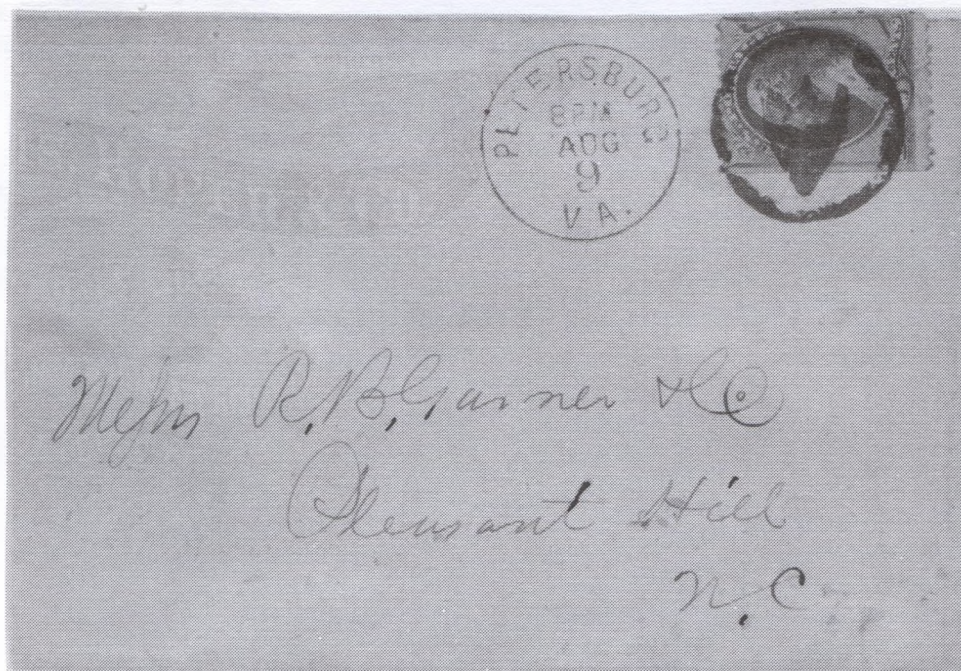 PETERSBURG
8 PM
AUG
9
VA.
Messrs R. B. Garner & Co
Pleasant Hill
N.C